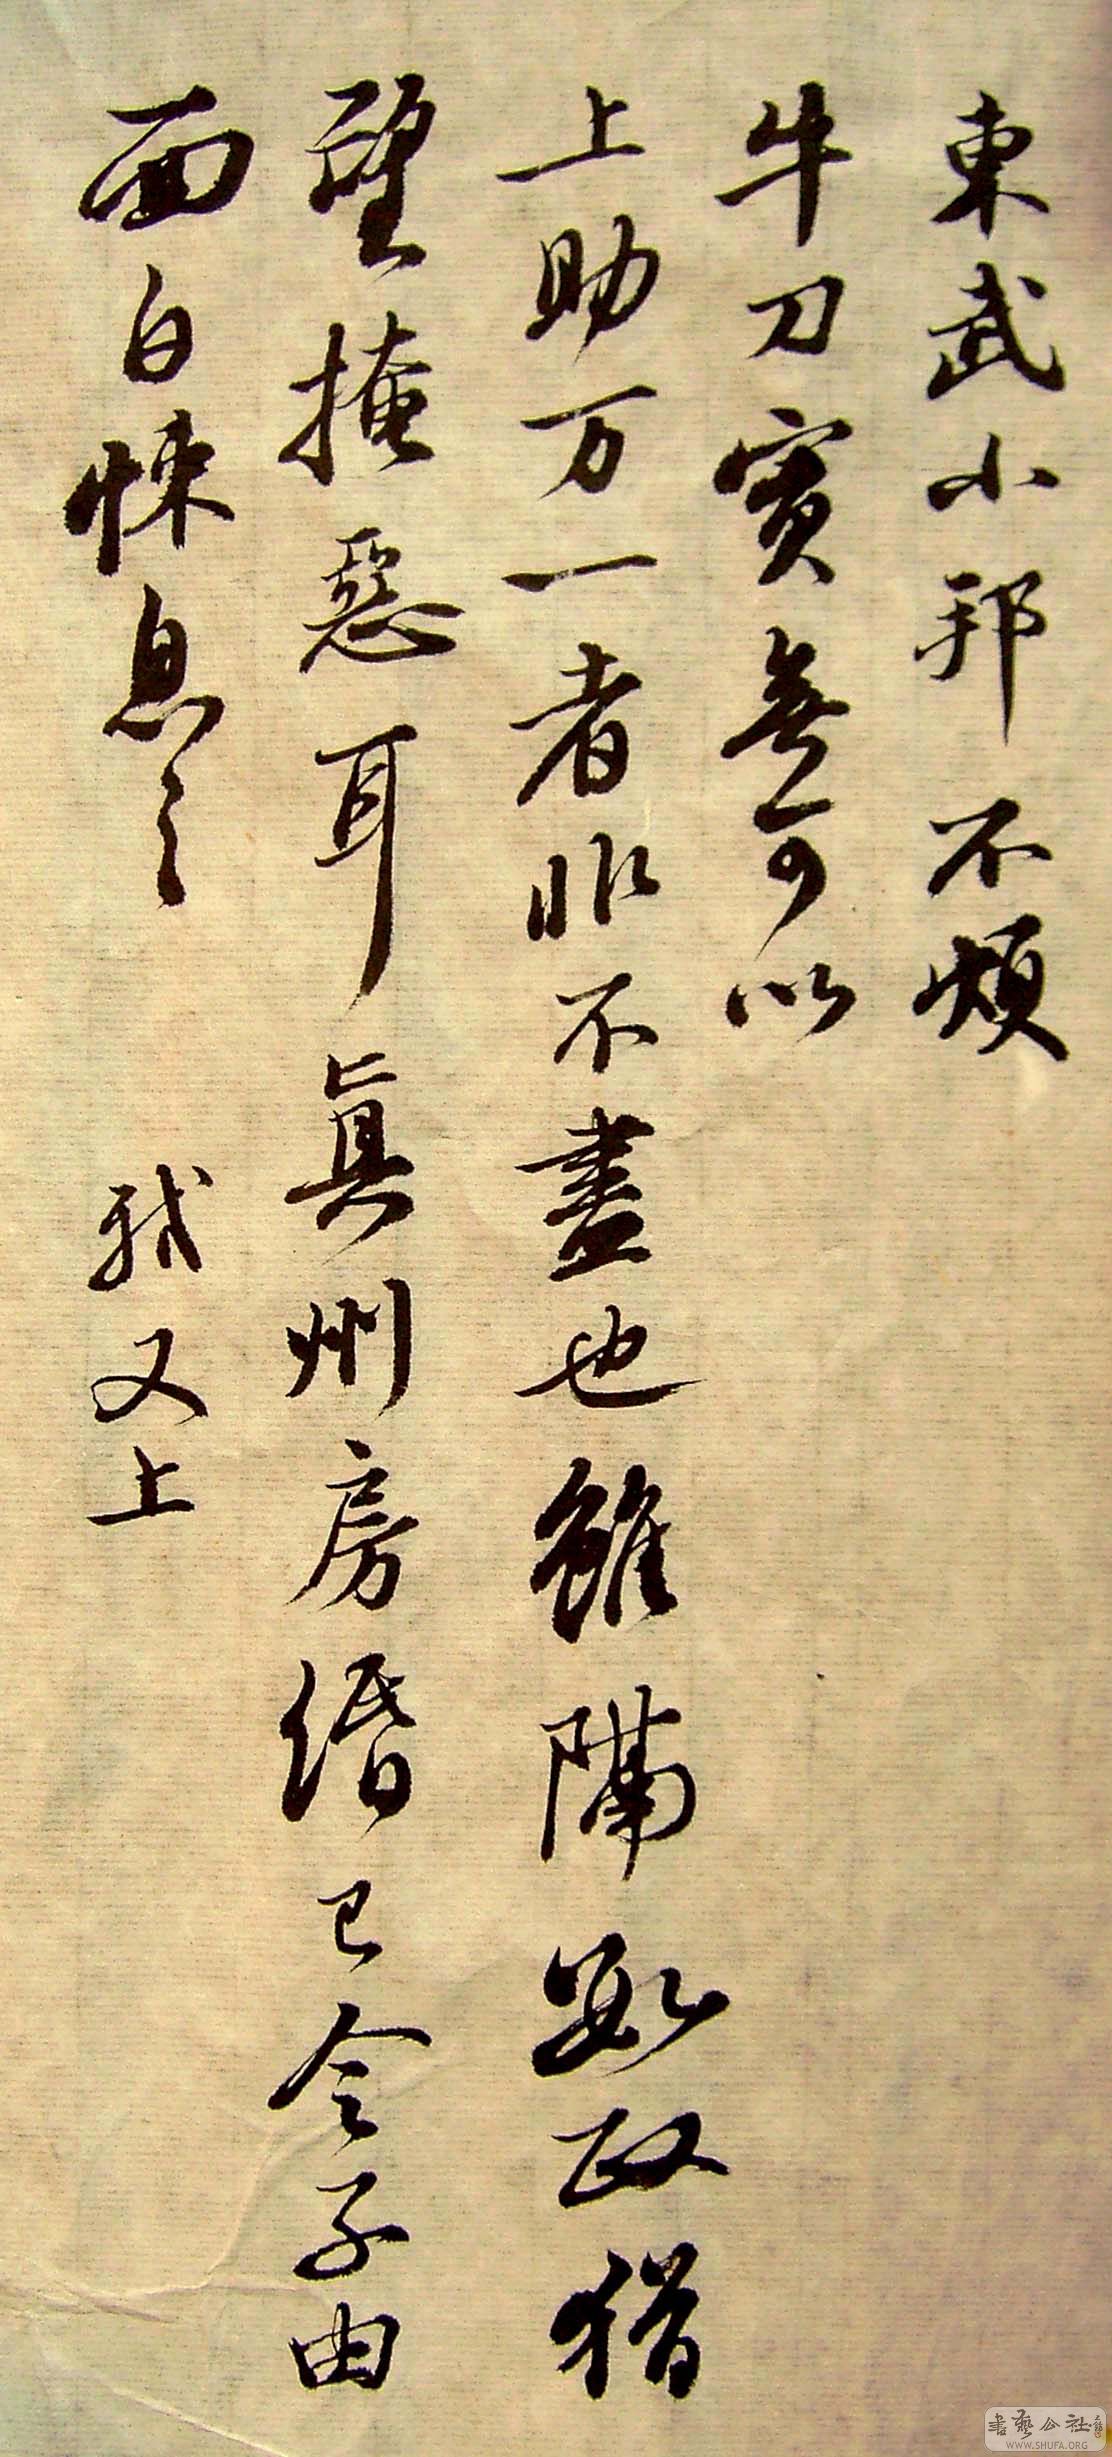 東武小邦不煩
牛刀實無可以
上助万一者非不盡也雖隔數政猶
望掩惡耳真州房緡已令子由
面白悚息之
軾又上
書藝公社
WWW.SHUFA.ORG